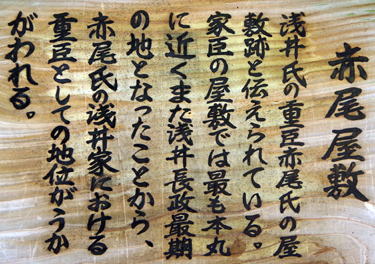 赤尾屋敷
浅井氏の重臣赤尾氏の屋
敷跡と伝えられている。
家臣の屋敷では最も本丸
に近くまた浅井長政最期
の地となったことから、
赤尾氏の浅井家における
重臣としての地位がうか
がわれる。